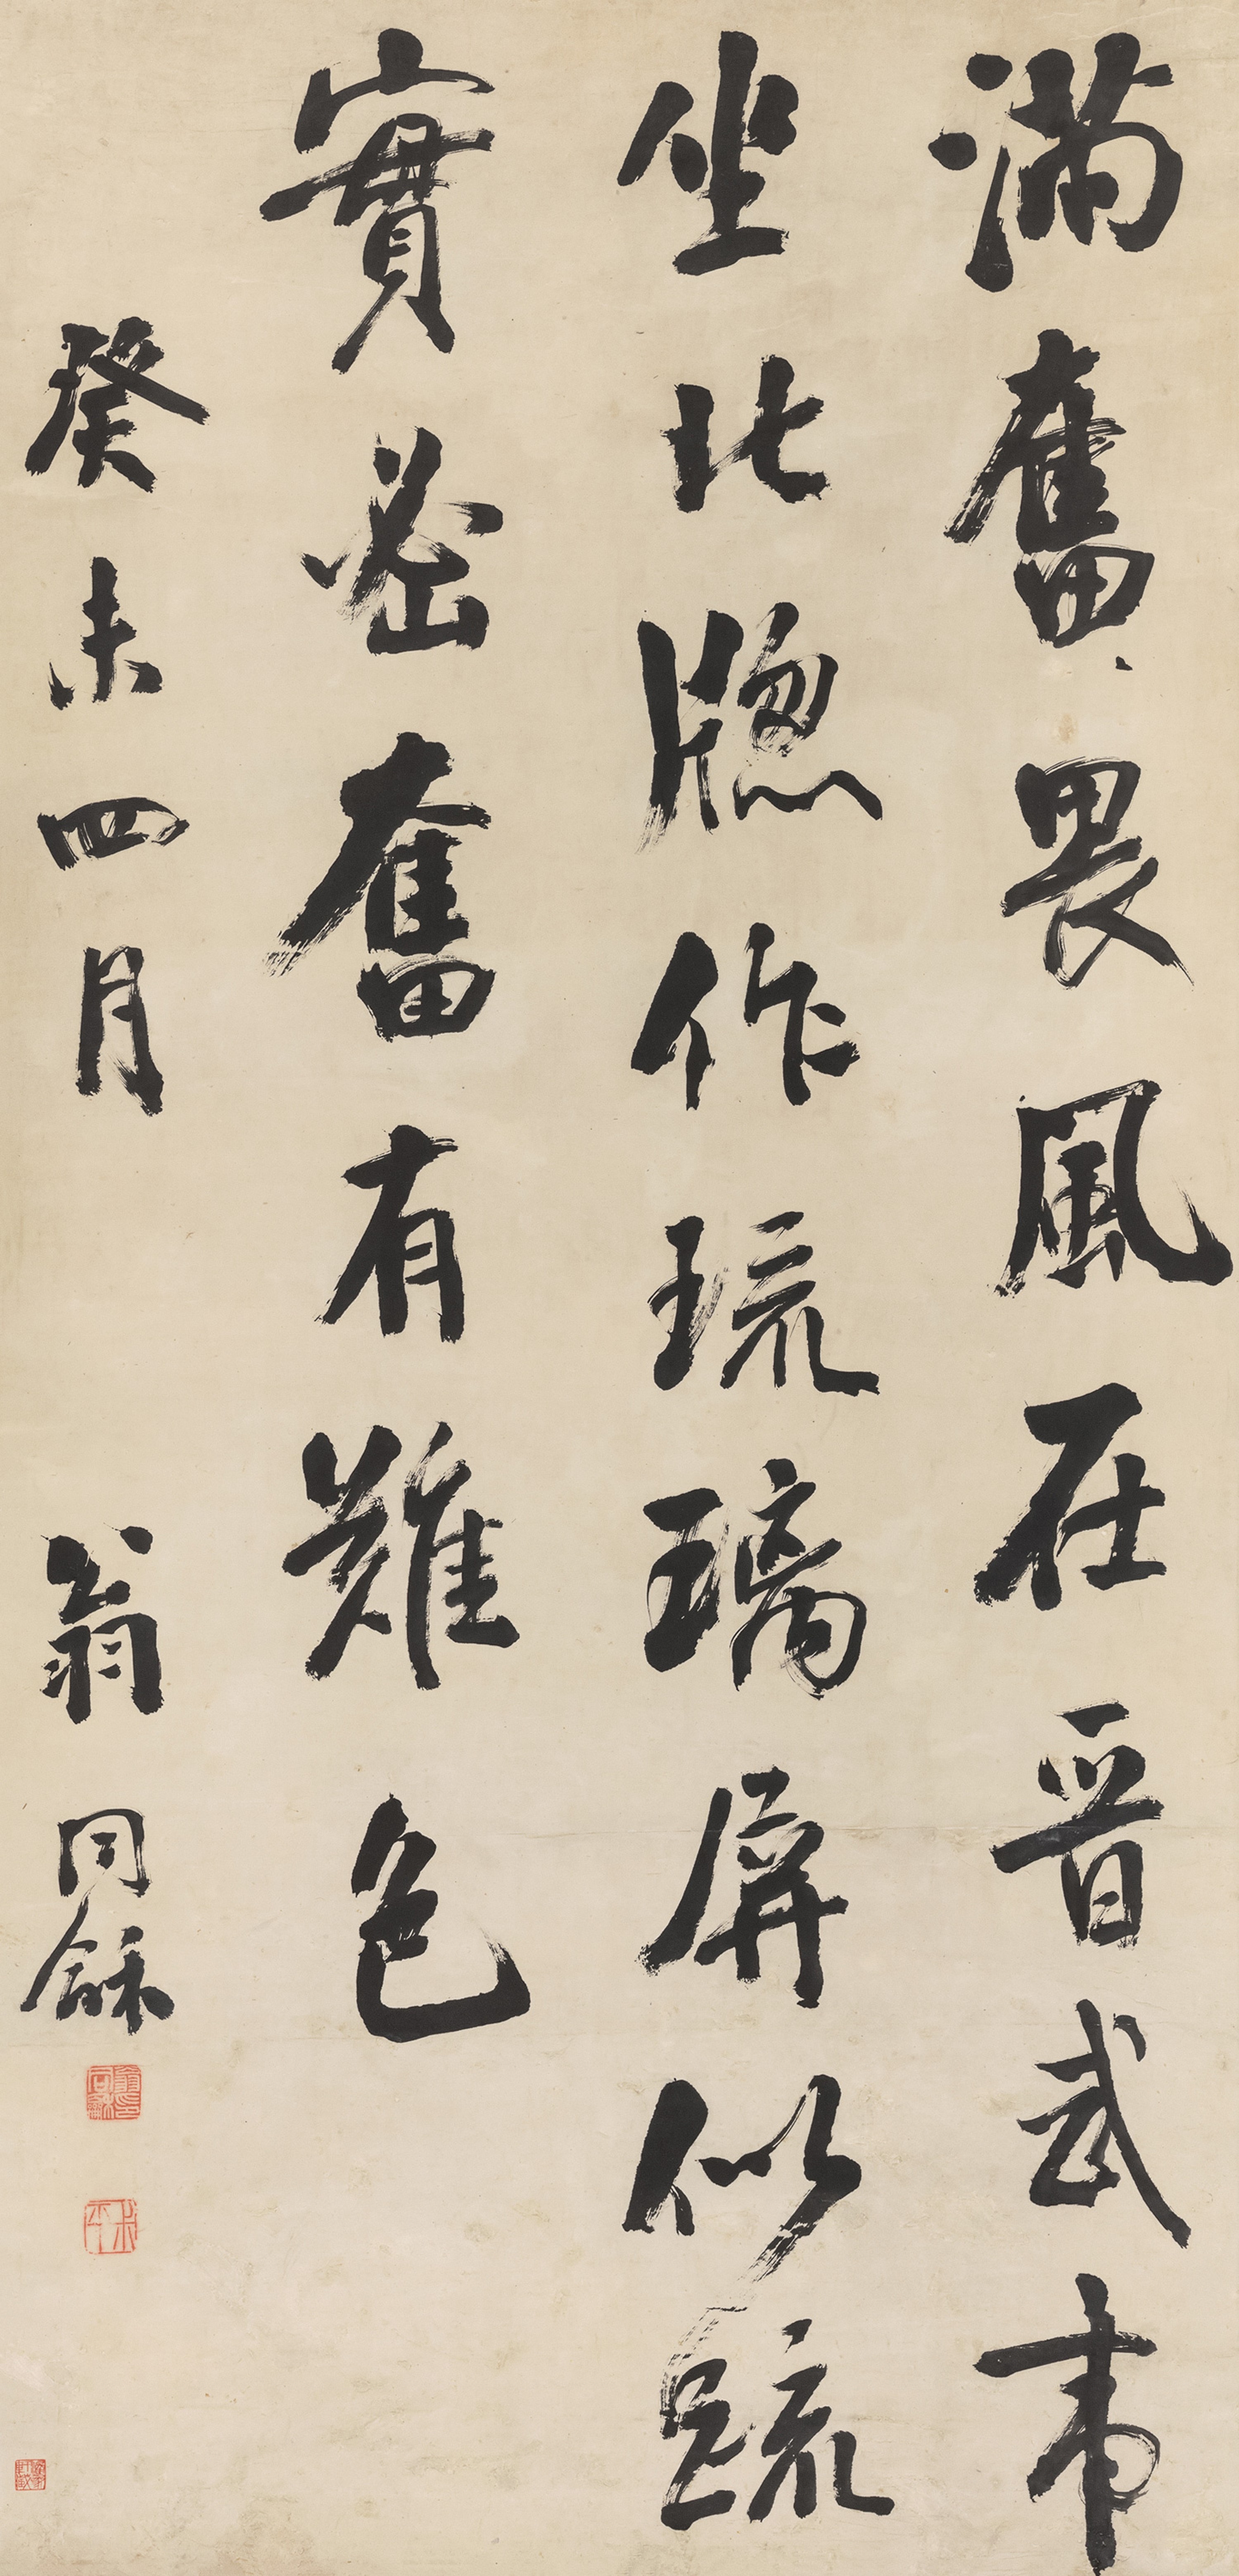 滿奮畏風在晉武帝
坐北牕作琉璃屏似疏
實密奮有難色
癸未四月 翁同龢